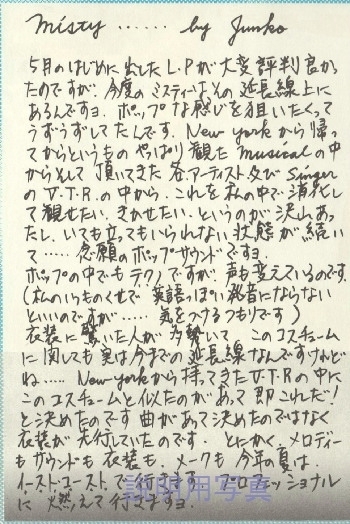 Misty ...... by Junko
5月のはじめに出したL.Pが大変評判良かっ
たのですが、今度のミスティーはその延長線上に
あるんですヨ。ポップな感じを狙いたくって
うずうずしてたんです。New yorkから帰っ
てからというもの やっぱり観たmusicalの中
からそして頂いてきた各アーティスト及びsinger
のV.T.R.の中から、これを私の中で消化し
て観せたい、きかせたい、というのが沢山あっ
たし、いても立ってもいられない状態が続い
て……念願のポップサウンドですヨ。
ポップの中でもテクノですが声も変えているのです。
(私のいつものくせで英語っぽい発音にならない
といいのですが……気をつけるつもりです)
衣装に驚いた人が多勢いて、このコスチューム
に関しても実は今までの延長線なんですけれど
ね……New yorkから持ってきたV.T.Rの中に
このコスチュームと似たのがあって即これだ!
と決めたのです 曲があって決めたのではなく
衣装が先行していたのです。とにかく、メロディー
もサウンドも衣装も、メークも今年の夏は
イースト・コーストで行きます。プロフェッショナル
に燃えて行きますヨ。
説明用写真